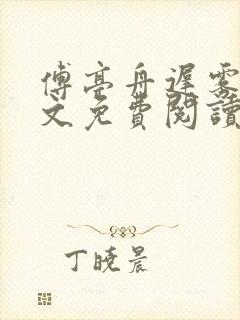 傅亭舟遲雾
文免費閱讀
丁曉晨